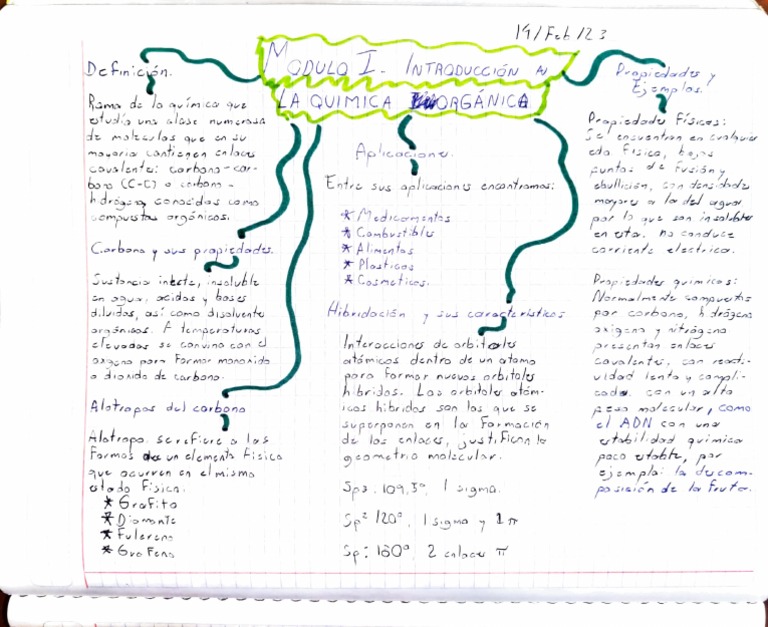 14/Feb/23
MODULO I. INTRODUCCIÓN A
LA QUIMICA ORGÁNICA
Definición.
Rama de la química que
estudia una clase numerosa
de moleculas que en su
mayoria contienen enlaces
covalentes: carbono-car-
bono (C-C) o carbono-
hidrógeno conocidas como
compuestos orgánicos.
Carbono y sus propiedades.
Sustancia inerte, insoluble
en agua, acidos y bases
diluidas, así como disolvente
orgánicos. A temperaturas
elevadas se convina con el
oxigeno para formar monoxido
o dioxido de carbono.
Alotropos del carbono
Alotropo se refiere a las
formas de un elemento física
que ocurren en el mismo
estado física.
* Grafito
* Diamante
* Fulereno
* Grafeno
Aplicaciones.
Entre sus aplicaciones encontramos:
* Medicamentos
* Combustibles
* Alimentos
* Plasticos
* Cosmeticos.
Hibridación y sus características
Interacciones de orbitales
atómicos dentro de un atomo
para formar nuevos orbitales
hibridos. Los orbitales atóm-
icos hibridos son los que se
superponen en la formación
de los enlaces, justifican la
geometria molecular.
Sp3. 109,5°, 1 sigma.
Sp² 120°, 1 sigma y 1 π
Sp: 180°, 2 enlaces π
Propiedades y
Ejemplos.
Propiedades Físicas:
Se encuentran en cualquier
edo física, bajos
puntos de fusión y
ebullición, son densidades
mayores a la del agua
por lo que son insolubles
en esta. no conduce
corriente electrica.
Propiedades quimicas:
Normalmente compuestos
por carbono, hidrógeno
oxigeno y nitrógeno
presentan enlaces
covalentes, con reacti-
vidad lenta y compli-
cada. con un alto
peso molecular, como
el ADN con una
estabilidad química
poco estable, por
ejemplo: la descom-
posición de la fruta.